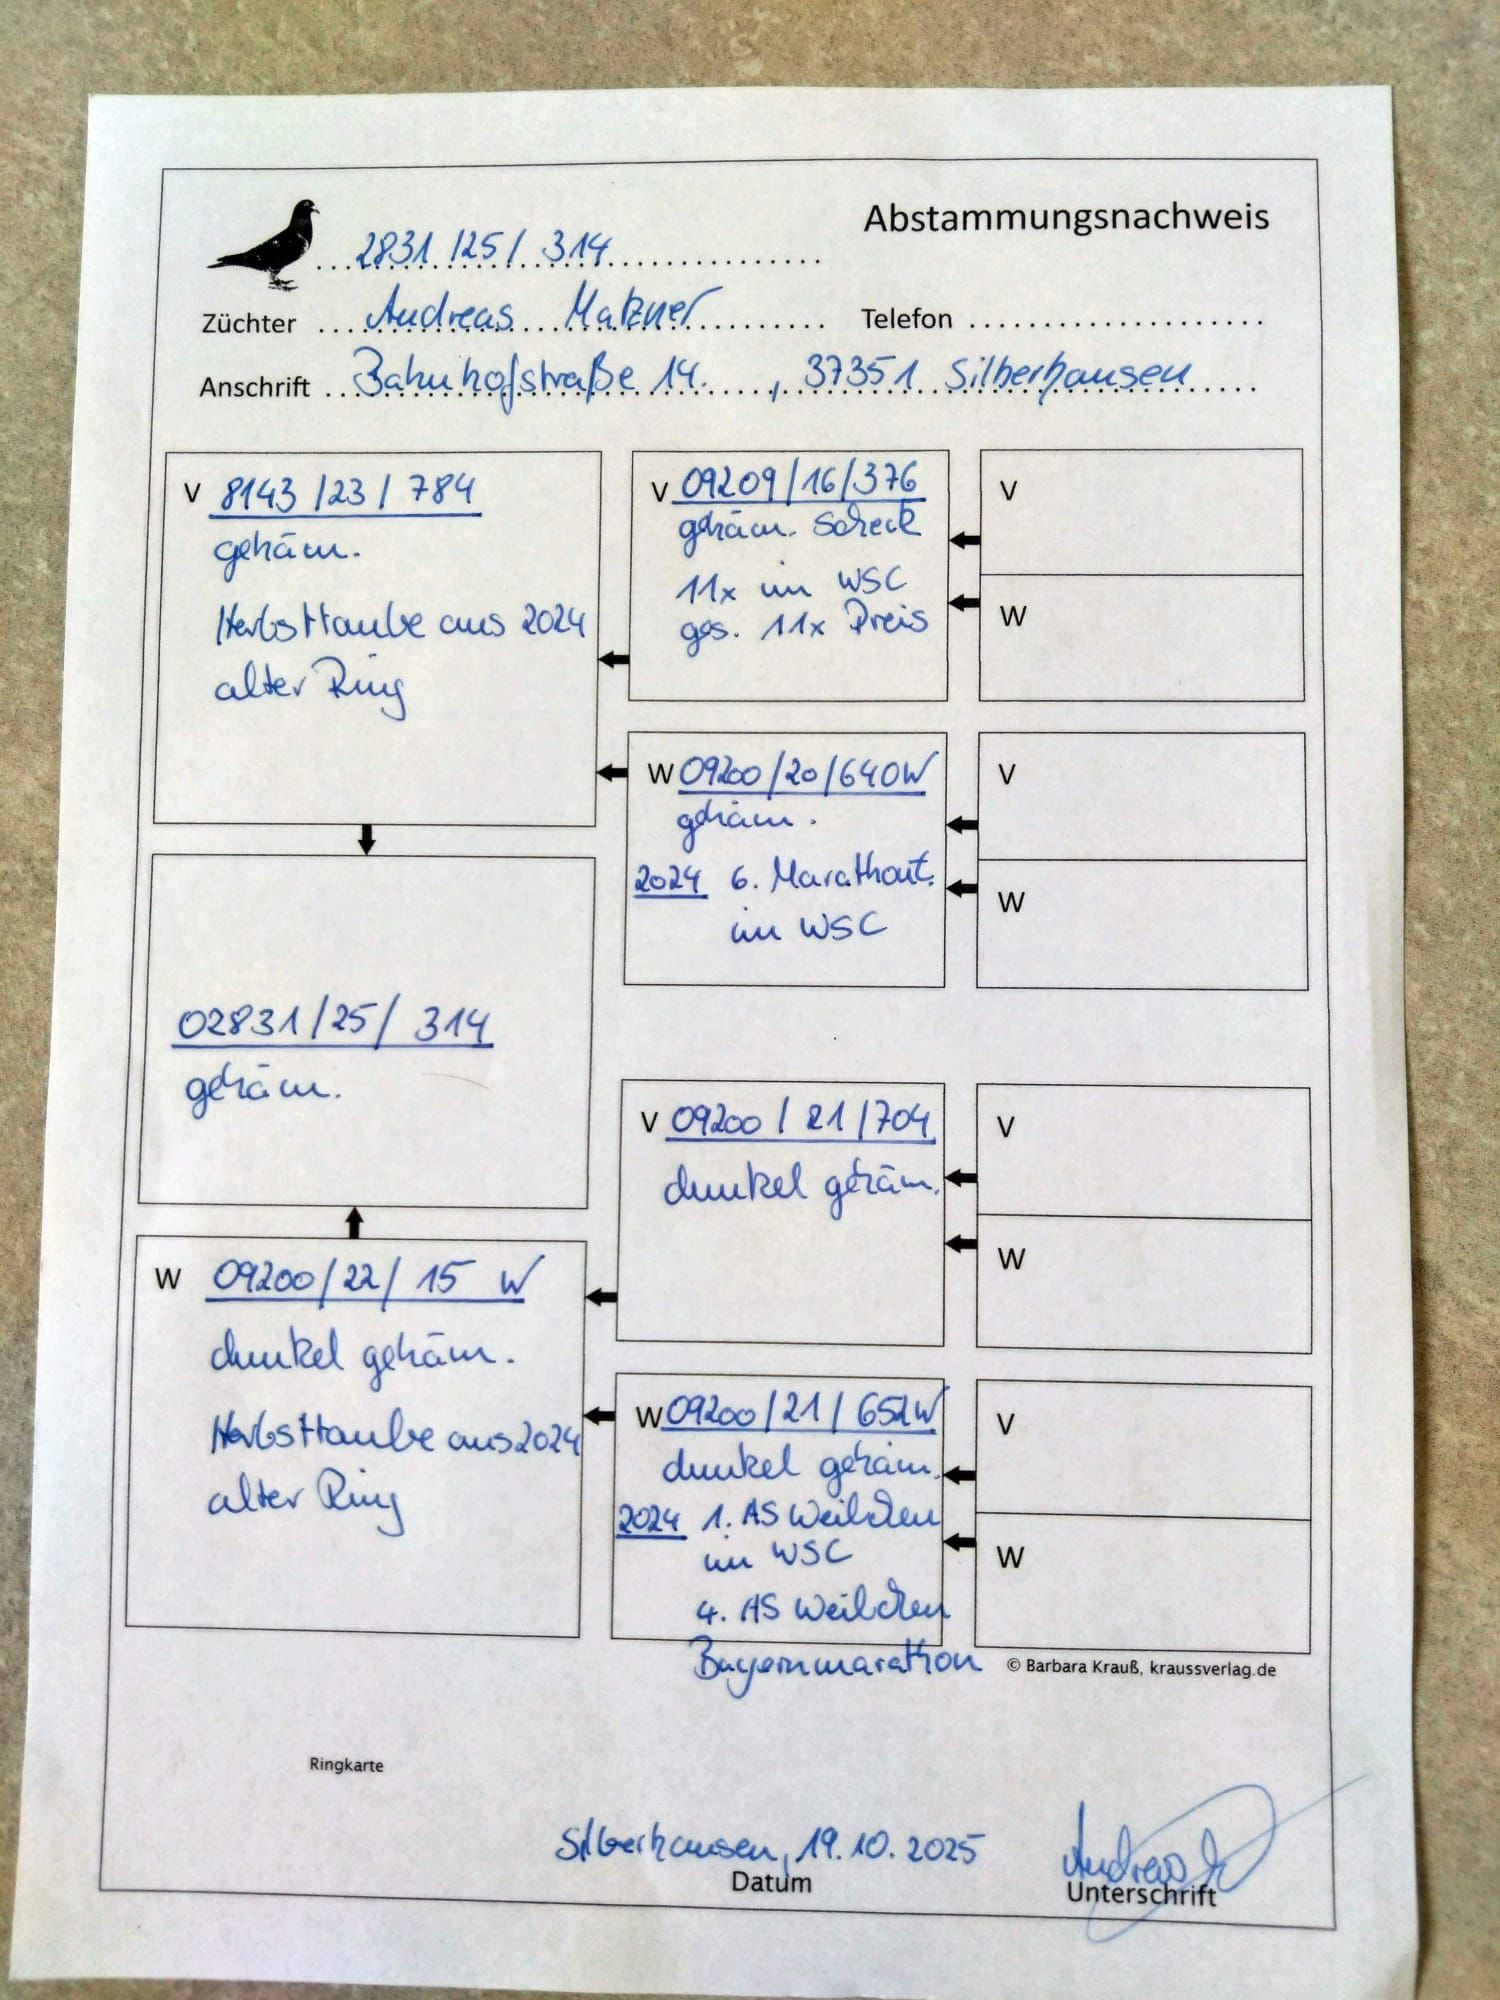 Abstammungsnachweis
2831/25/ 314
Züchter Andreas Matzner Telefon
Anschrift Bahnhofstraße 14. , 37351 Silberhausen
V 8143/23/ 784
gehäm.
Herbsttaube aus 2024
alter Ring
V 09209/16/376
gehäm. Scheck
11x im WSC
ges. 11x Preis
V
W
W 09200/20/640W
gehäm.
2024 6. Marathont.
im WSC
V
W
02831/25/ 314
gehäm.
V 09200/21/704
dunkel gehäm.
V
W
W 09200/22/ 15 W
dunkel gehäm.
Herbsttaube aus 2024
alter Ring
W 09200/21/652W
dunkel gehäm.
2024 1. AS Weibchen
im WSC
4. AS Weibchen
Bayernmarathon
V
W
© Barbara Krauß, kraussverlag.de
Ringkarte
Silberhausen, 19.10.2025
Datum
Andreas
Unterschrift